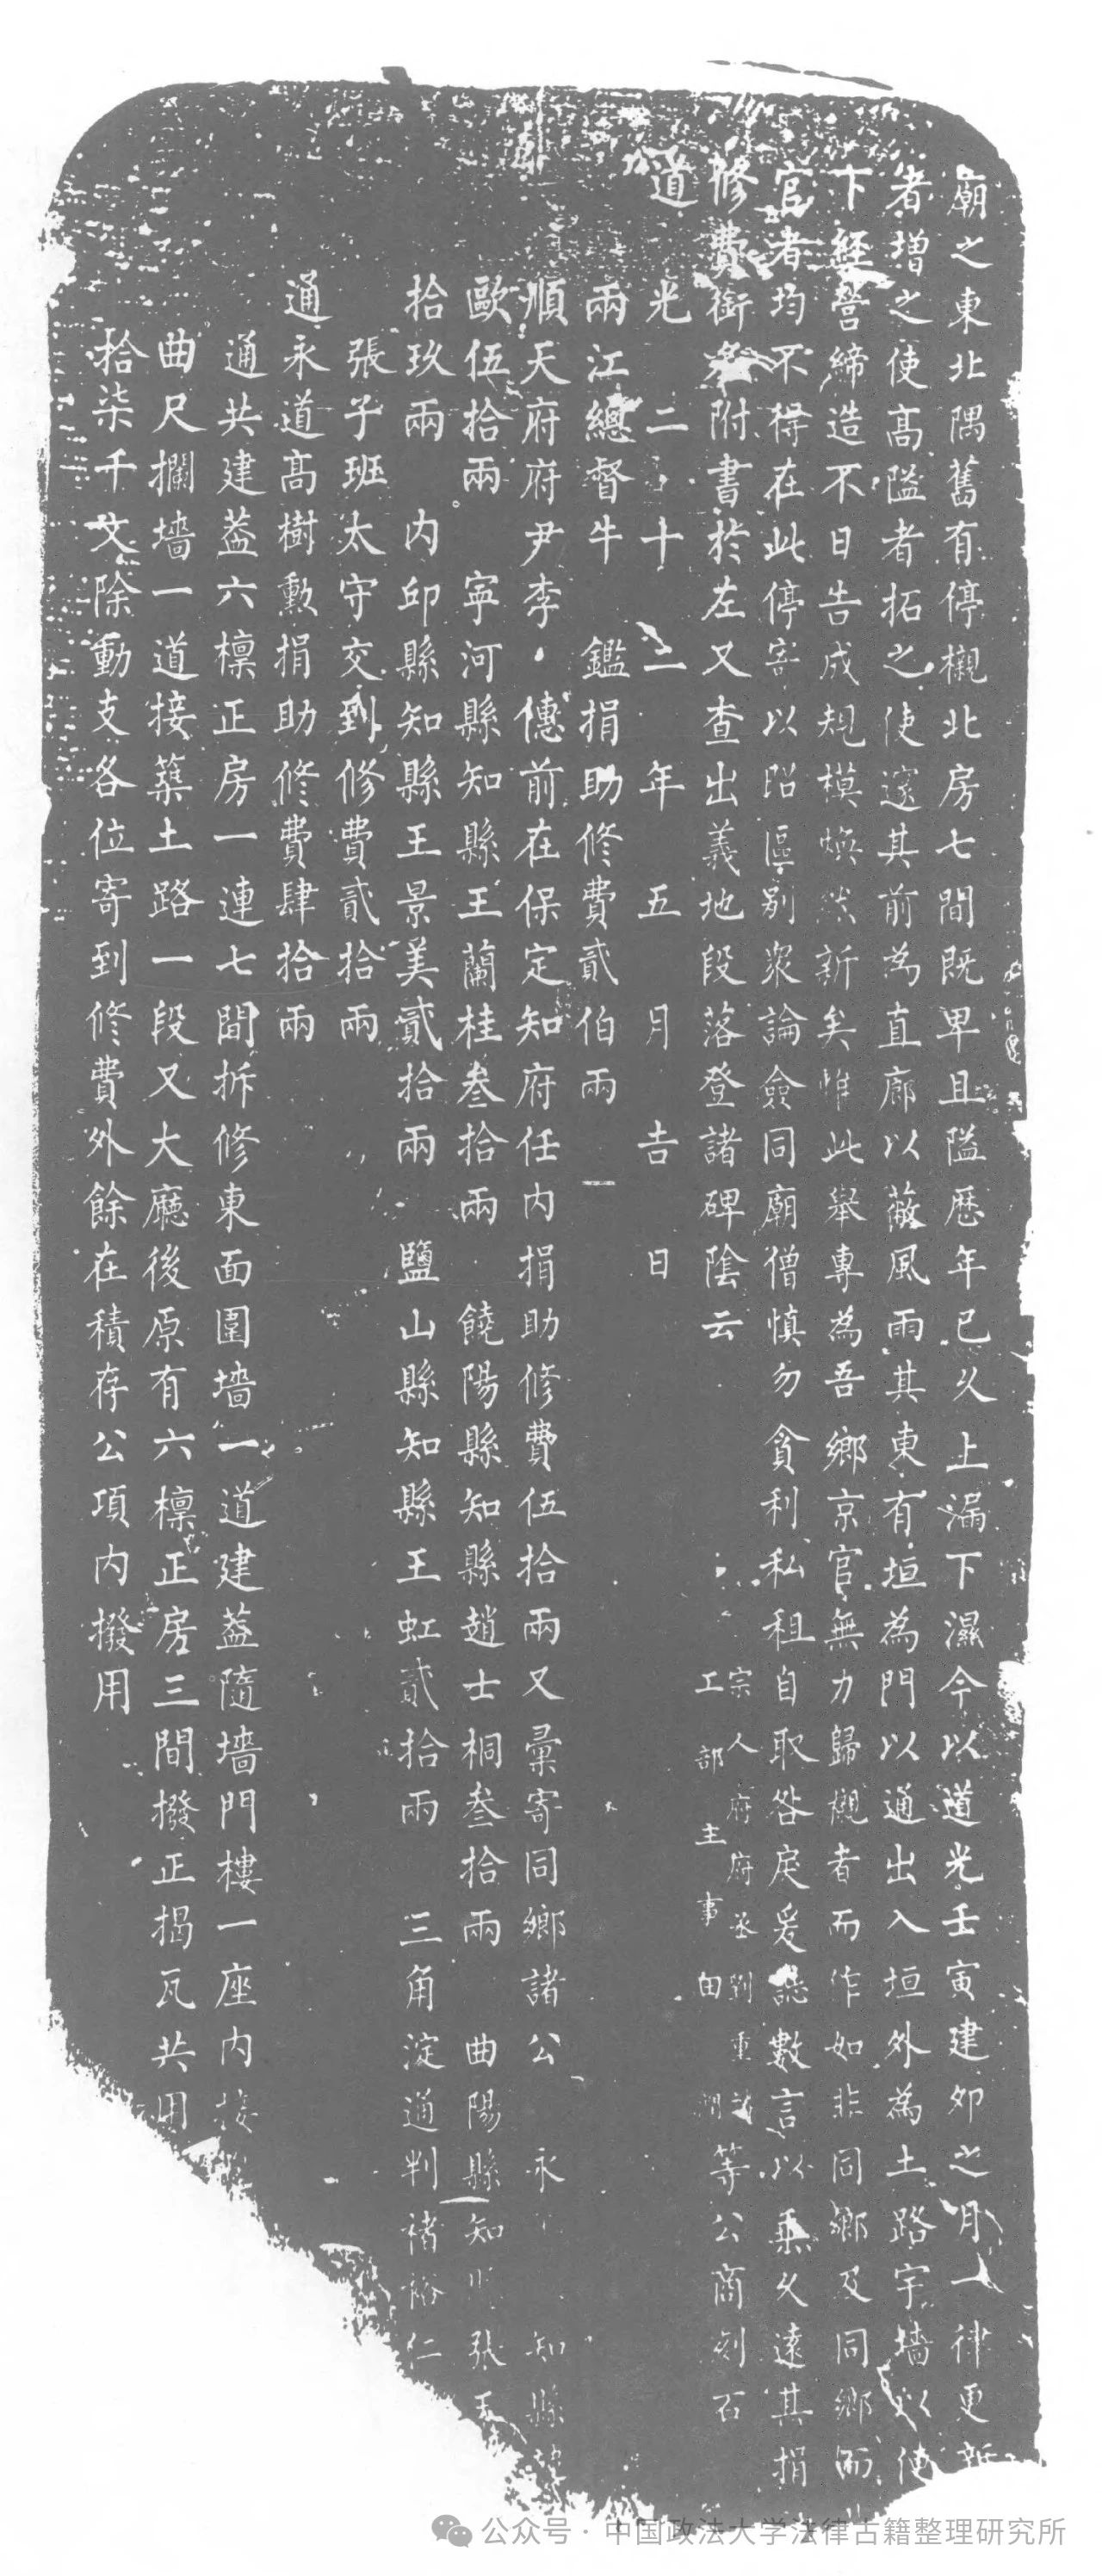 廟之東北隅舊有停櫬北房七間既卑且隘歷年已久上漏下濕今以道光壬寅建夘之月一律更新
者增之使高隘者拓之使邃其前為直廊以蔽風雨其東有垣為門以通出入垣外為土路宇墻以便
下經營締造不日告成規模煥然新矣惟此舉專為吾鄉京官無力歸櫬者而作如非同鄉及同鄉而
官者均不得在此停寄以昭區别衆論僉同廟僧慎勿貪利私租自取咎戾爰誌數言以垂久遠其捐
修費銜名附書於左又查出義地段落登諸碑陰云
宗人府府丞劉重
工部主事田 等公商刻石
道光二十二年五月吉日
兩江總督牛鑑捐助修費貳伯兩
順天府府尹李僡前在保定知府任內捐助修費伍拾兩又彙寄同鄉諸公 永 知縣
歐伍拾兩 寗河縣知縣王蘭桂叁拾兩 饒陽縣知縣趙士桐叁拾兩 曲陽縣知 張玉
拾玖兩 內邱縣知縣王景美貳拾兩 鹽山縣知縣王虹貳拾兩 三角淀通判褚裕仁
張子班太守交到修費貳拾兩
通永道高樹勳捐助修費肆拾兩
通共建葢六檁正房一連七間拆修東面圍墻一道建葢隨墻門樓一座內接
曲尺攔墻一道接築土路一段又大廳後原有六檁正房三間撥正揭瓦共用
拾柒千文除動支各位寄到修費外餘在積存公項內撥用
公众号·中国政法大学法律古籍整理研究所